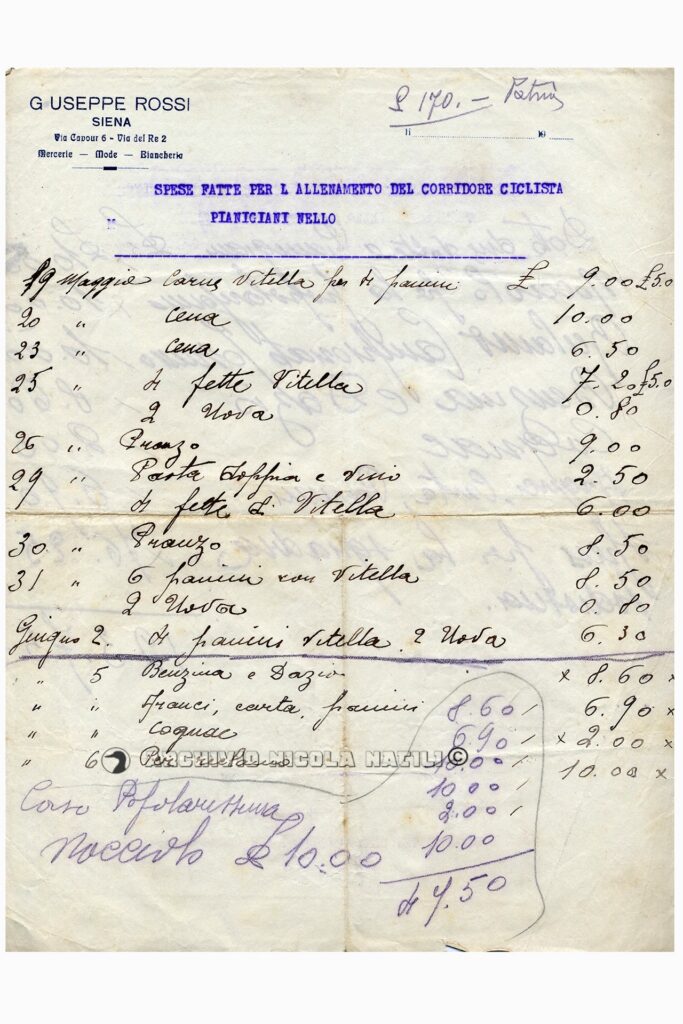 GIUSEPPE ROSSI
SIENA
Via Cavour 6 - Via del Re 2
Mercerie — Mode — Biancheria
£ 170.—
li 19
SPESE FATTE PER L ALLENAMENTO DEL CORRIDORE CICLISTA
M PIANIGIANI NELLO
19 Maggio Carne Vitella per 4 panini £ 9.00 £50
20 " cena 10.00
23 " cena 6.50
25 " 4 fette Vitella 7.20 £50
2 Uova 0.80
26 " Pranzo 9.00
29 " Pasta doppia e vino 2.50
4 fette di Vitella 6.00
30 " Pranzo 8.50
31 " 6 panini con Vitella 8.50
2 Uova 0.80
Giugno 2. 4 panini vitella 2 Uova 6.30
" 5 Benzina e Dazio x 8.60 x
" " Franci, carta, panini 8.60 / 6.90 x
" " cognac 6.90 / x 2.00 x
" 6 Per 10.00 10.00 x
ARCHIVIO NICOLA NATILI ©
10.00 /
Corso Popolarissima 2.00 /
Nocciolo £ 10.00 10.00
47.50